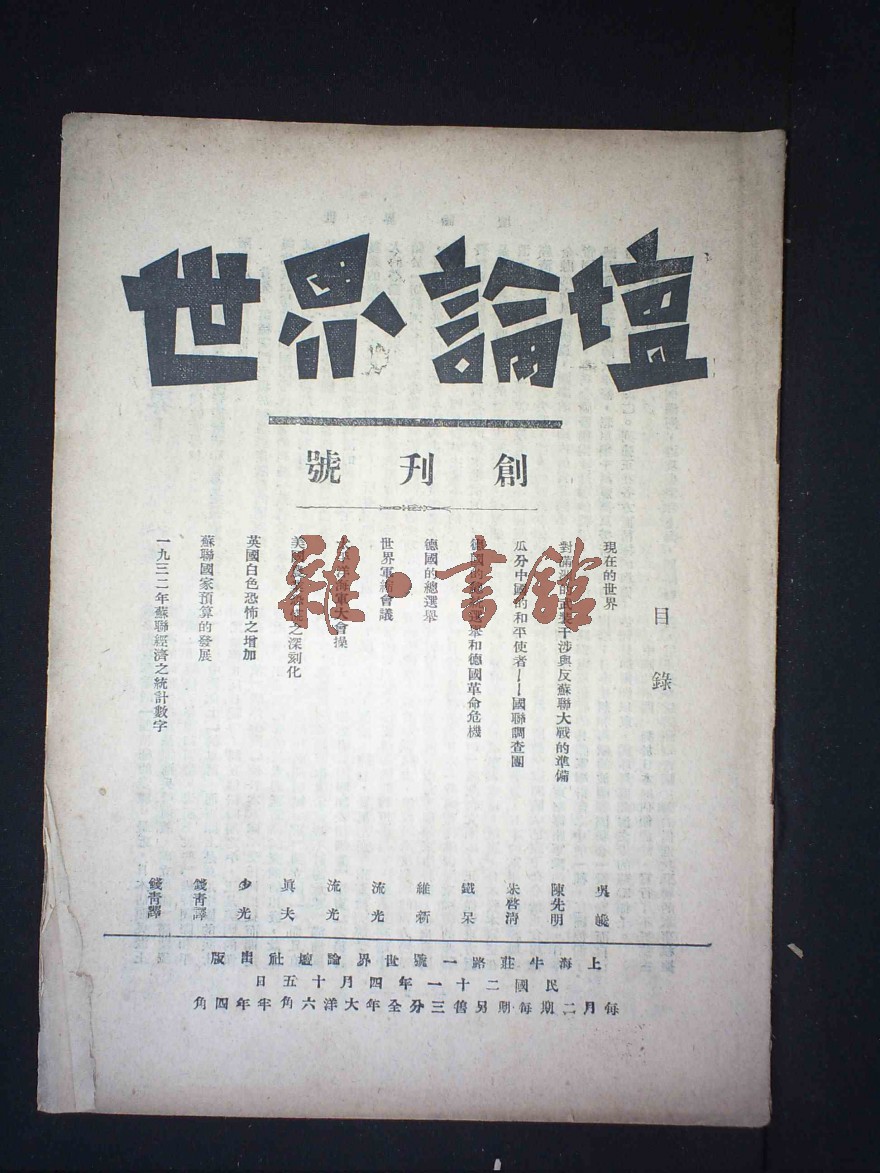 世界論壇
創刊號
目錄
現在的世界 吳
對滿洲的武裝干涉與反蘇聯大戰的準備 陳先明
瓜分中國的和平使者——國聯調查團 朱啓清
德國的選舉和德國革命危機 鐵呆
德國的總選舉 維新
世界軍縮會議 流光
海軍大會操 流光
美國之深刻化 眞夫
英國白色恐怖之增加 少光
蘇聯國家預算的發展 錢靑譯
一九三二年蘇聯經濟之統計數字 錢靑譯
上海牛莊路一號世界論壇社出版
民國二十一年四月十五日
每月二期每期另售三分全年大洋六角半年四角
雜·書館